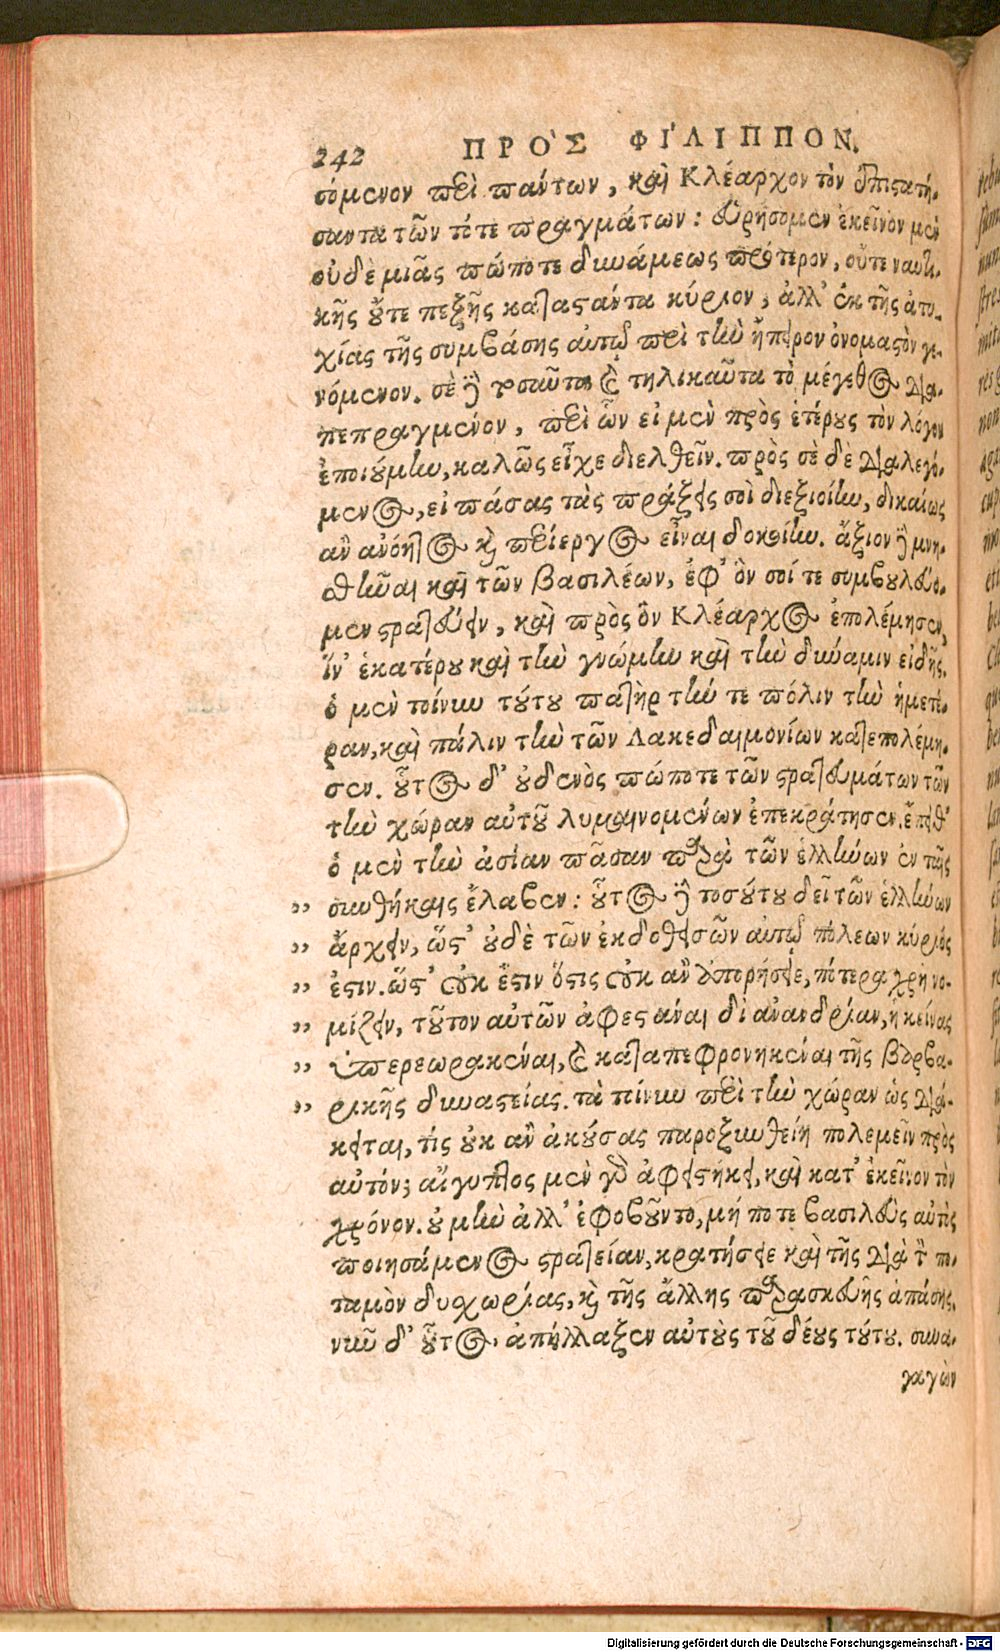 242 ΠΡΟ`Σ ΦΙ´ΛΙΠΠΟΝ.
σόμενον περὶ πάντων, καὶ Κλέαρχον τὸν ἐπιστατή-
σαντα τῶν τότε πραγμάτων: εὑρήσομεν ἐκεῖνον μὲν
οὐδὲ μιᾶς πώποτε δυνάμεως πρότερον, οὔτε ναυτι-
κῆς οὔτε πεζῆς καταστάντα κύριον, ἀλλ' ἐκ τῆς ἀτυ-
χίας τῆς συμβάσης αὐτῷ περὶ τὴν ἤπειρον ὀνομαστὸν γε-
νόμενον. σὲ δὲ τοσαῦτα καὶ τηλικαῦτα τὸ μέγεθος δια-
πεπραγμένον, περὶ ὧν εἰ μὲν πρὸς ἑτέρους τὸν λόγον
ἐποιούμην, καλῶς εἶχε διελθεῖν. πρὸς σὲ δὲ διαλεγό-
μενος, εἰ πάσας τὰς πράξεις σοὶ διεξιοίην, δικαίως
ἂν ἀνόητος καὶ περίεργος εἶναι δοκοίην. ἄξιον δὲ μνη-
σθῆναι καὶ τῶν βασιλέων, ἐφ' ὃν σοί τε συμβουλεύο-
μεν στρατεύειν, καὶ πρὸς ὃν Κλέαρχος ἐπολέμησεν,
ἵν' ἑκατέρου καὶ τὴν γνώμην καὶ τὴν δύναμιν εἰδῇς.
ὁ μὲν τοίνυν τούτου πατὴρ τήν τε πόλιν τὴν ἡμετέ-
ραν, καὶ πάλιν τὴν τῶν Λακεδαιμονίων κατεπολέμη-
σεν. οὗτος δ' οὐδενὸς πώποτε τῶν στρατευμάτων τῶν
τὴν χώραν αὐτοῦ λυμαινομένων ἐπεκράτησεν. ἔπειθ'
ὁ μὲν τὴν ἀσίαν πᾶσαν παρὰ τῶν ἑλλήνων ἐν ταῖς
,, συνθήκαις ἔλαβεν: οὗτος δὲ τοσούτου δεῖ τῶν ἑλλήνων
,, ἄρχειν, ὥστ' οὐδὲ τῶν ἐκδοθεισῶν αὐτῷ πόλεων κύριός
,, ἐστιν. ὥστ' οὐκ ἔστιν ὅστις οὐκ ἂν ἀπορήσειε, πότερα χρὴ νο-
,, μίζειν, τοῦτον αὐτῶν ἀφεστάναι δι' ἀνανδρίαν, ἢ κείνας
,, ὑπερεωρακέναι, καὶ καταπεφρονηκέναι τῆς βαρβα-
,, ρικῆς δυναστείας. τὰ τοίνυν περὶ τὴν χώραν ὡς διά-
κειται, τίς οὐκ ἂν ἀκούσας παροξυνθείη πολεμεῖν πρὸς
αὐτόν; αἴγυπτος μὲν γὰρ ἀφειστήκει, καὶ κατ' ἐκεῖνον τὸν
χρόνον. οὐ μὴν ἀλλ' ἐφοβοῦντο, μή ποτε βασιλεὺς αὐτὸς
ποιησάμενος στρατείαν, κρατήσειε καὶ τῆς διὰ τὸν πο-
ταμὸν δυχωρίας, καὶ τῆς ἄλλης παρασκευῆς ἁπάσης.
νῦν δ' οὗτος ἀπήλλαξεν αὐτοὺς τοῦ δέους τούτου. συνα-
γαγὼν
Digitalisierung gefördert durch die Deutsche Forschungsgemeinschaft - DFG